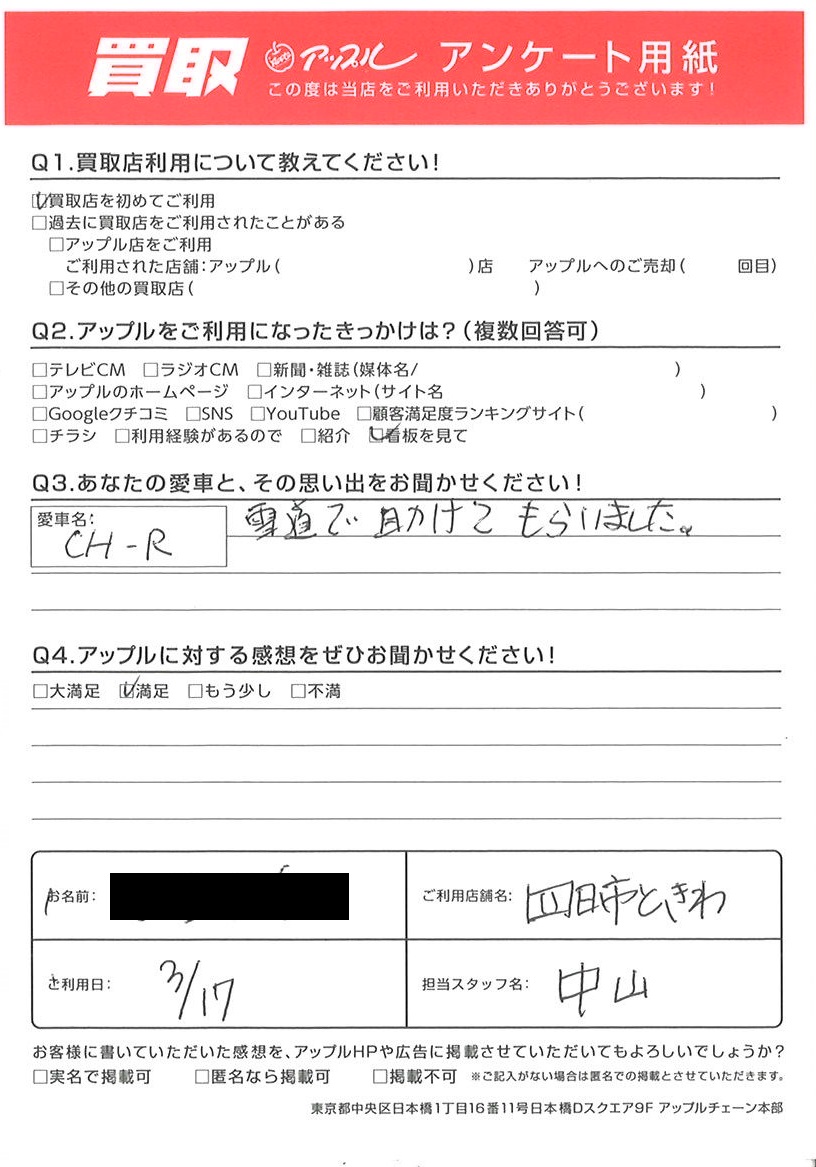 買取 アップル アンケート用紙
この度は当店をご利用いただきありがとうございます！
Q1.買取店利用について教えてください！
☑買取店を初めてご利用
□過去に買取店をご利用されたことがある
□アップル店をご利用
ご利用された店舗：アップル（　　　）店　アップルへのご売却（　　　回目）
□その他の買取店（　　　）
Q2.アップルをご利用になったきっかけは？（複数回答可）
□テレビCM □ラジオCM □新聞・雑誌（媒体名/　　　）
□アップルのホームページ □インターネット（サイト名　　　）
□Googleクチコミ □SNS □YouTube □顧客満足度ランキングサイト（　　　）
□チラシ □利用経験があるので □紹介 ☑看板を見て
Q3.あなたの愛車と、その思い出をお聞かせください！
愛車名：
CH-R
雪道で助けてもらいました。
Q4.アップルに対する感想をぜひお聞かせください！
□大満足 ☑満足 □もう少し □不満
お名前：
ご利用店舗名：四日市ときわ
ご利用日：3/17
担当スタッフ名：中山
お客様に書いていただいた感想を、アップルHPや広告に掲載させていただいてもよろしいでしょうか？
□実名で掲載可 □匿名なら掲載可 □掲載不可 ※ご記入がない場合は匿名での掲載とさせていただきます。
東京都中央区日本橋1丁目16番11号日本橋Dスクエア9F アップルチェーン本部